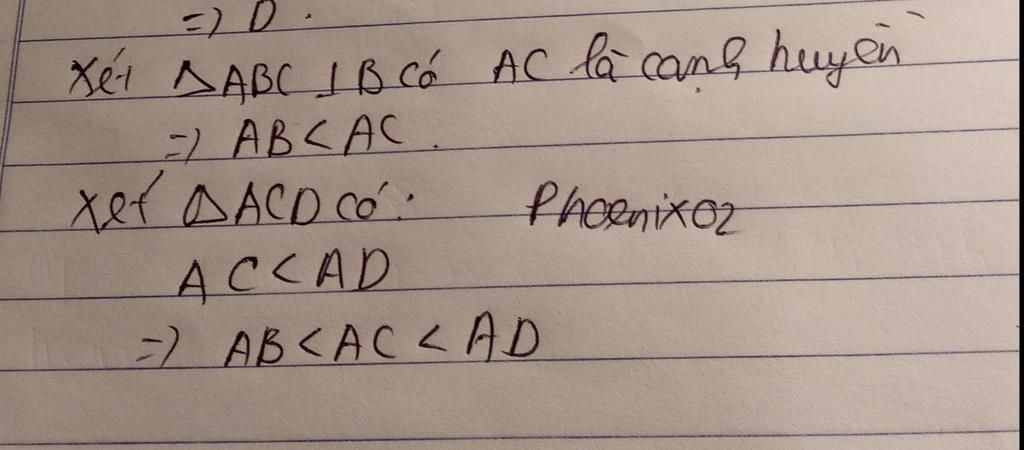 =) D.
Xét △ABC ⊥ B có AC là cạnh huyền
=) AB < AC.
Xét △ACD có: Phoenix02
AC < AD
=) AB < AC < AD